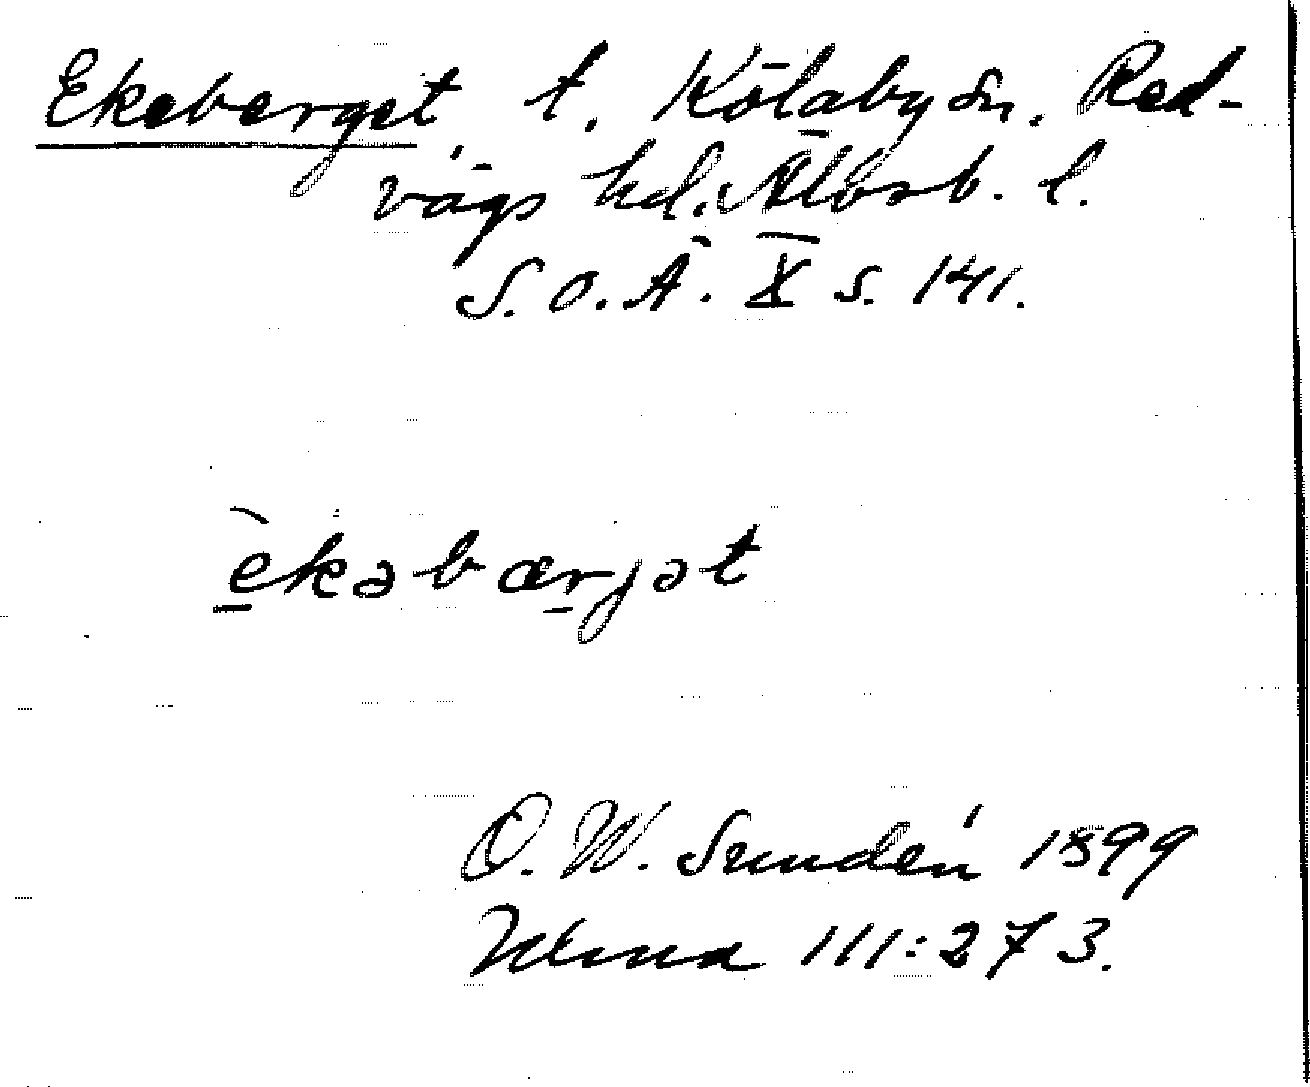 Ekeberget t. Kölaby sn. Red-
vägs hd. Älvsb. l.
S.O.Ä. X s. 141.
èkəbærjət
O. W. Sundén 1899
111:273.